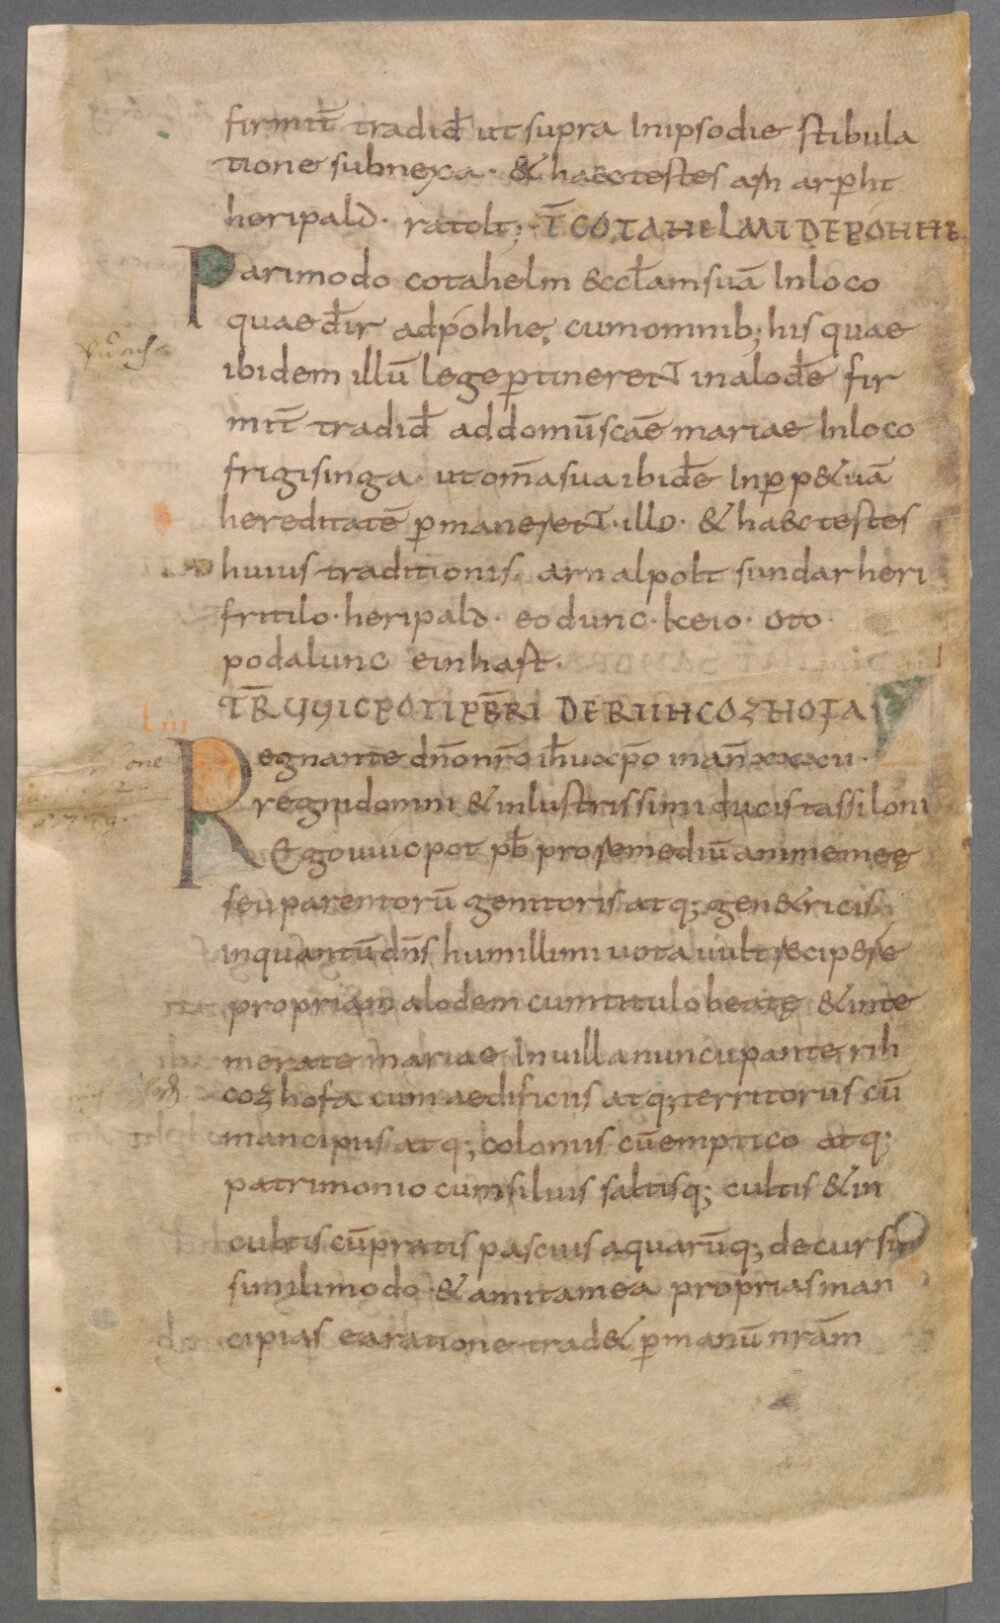 firmit̄ tradid̄ ut supra In ipso die stibula
tione subnexa · & haec testes arn arpħt
heripald · ratolt; T̄ COTAHELMI DE POHHE
Pari modo cotahelm &ccłam suā In loco
quae d̄r ad póhhe, cum omnib; his quae
ibidem illū lege ꝑtinerent in alode fir
mit̄ tradid̄ ad domū scāe mariae In loco
frigisinga · ut om̄a sua ibidē In ꝑp&uā
hereditatē ꝑmanerent · illo · & haec testes
huius traditionis · arn alpolt sundarheri
fritilo · heripald · eodunc · keio · oto ·
podalunc einhaft ·
TR̄ UUICPOTI PB̄RI DE RIHCOZHOFA
LIII
Regnante dn̄o nr̄o iħu xp̄o in an̄ xxxu ·
regni domni & inlustrissimi ducis tassiloni
Ego uuicpot pb̄ pro remediū anime meę
seu parentorū genitoris atq; gen&ricis
inquantū dn̄s humillimi uota uult recipere
propriam alodem cum titulo beatę & inte
merate mariae In uilla nuncupante rih
cozhofa cum aedificiis atq; territoriis cū
mancipiis atq; coloniis cū emptico atq;
patrimonio cum siluis saltisq; cultis & in
cultis cū pratis pascuis aquarūq; decursib
simili modo & amita mea proprias man
cipias ea ratione trad& ꝑ manū nrām